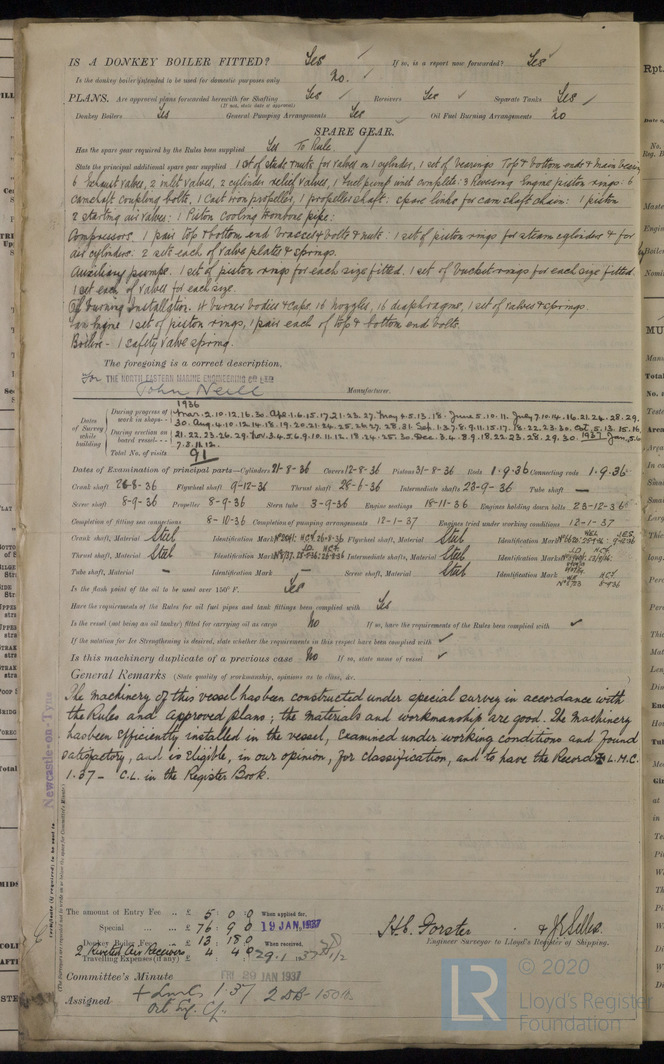 IS A DONKEY BOILER FITTED? Yes ✓ If so, is a report now forwarded? Yes ✓
Is the donkey boiler intended to be used for domestic purposes only No. ✓
PLANS. Are approved plans forwarded herewith for Shafting Yes ✓ Receivers Yes ✓ Separate Tanks Yes ✓
(If not, state date of approval)
Donkey Boilers Yes General Pumping Arrangements Yes ✓ Oil Fuel Burning Arrangements No
SPARE GEAR.
Has the spare gear required by the Rules been supplied Yes To Rule
State the principal additional spare gear supplied 1 set of studs & nuts for valves on 1 cylinder, 1 set of bearings Top & bottom ends & main bearing
6 Exhaust valves, 2 inlet valves, 2 cylinder relief valves, 1 Fuel pump unit complete: 3 Reversing Engine piston rings: 6
camshaft coupling bolts, 1 Cast iron propeller, 1 propeller shaft: spare links for cam shaft chain: 1 piston
2 starting air valves: 1 Piston Cooling trombone pipe:
Compressors. 1 pair top & bottom end brasses & bolts & nuts: 1 set of piston rings for steam cylinders & for
air cylinders: 2 sets each of valve plates & springs.
Auxiliary pumps. 1 set of piston rings for each size fitted. 1 set of bucket rings for each size fitted.
1 set each of valves for each size.
Oil Burning Installation. 4 burner bodies & caps 16 nozzles, 16 diaphragms, 1 set of valves & springs.
Fan Engine 1 set of piston rings, 1 pair each of top & bottom end bolts.
Boilers - 1 safety valve spring.
The foregoing is a correct description,
For THE NORTH EASTERN MARINE ENGINEERING CO. LTD.
John Neill Manufacturer.
1936
Dates of Survey while building
During progress of work in shops - - Mar. 2. 10. 12. 16. 30. Apr. 1. 6. 15. 17. 21. 23. 27. May 4. 5. 13. 18. June 5. 10. 11. July 7. 10. 14. 16. 21. 24. 28. 29.
30. Aug. 4. 10. 12. 14. 18. 19. 20. 21. 24. 25. 26. 27. 28. 31. Sep. 1. 3. 7. 8. 9. 11. 15. 17. 18. 22. 23. 30. Oct. 5. 13. 15. 16.
During erection on board vessel - - - 21. 22. 23. 26. 29. Nov. 3. 4. 5. 6. 9. 10. 11. 12. 18. 24. 25. 30. Dec. 3. 4. 8. 9. 18. 22. 23. 28. 29. 30. 1937 Jan. 5. 6
7. 8. 11. 12.
Total No. of visits 91
Dates of Examination of principal parts—Cylinders 21-8-36 Covers 12-8-36 Pistons 31-8-36 Rods 1.9.36 Connecting rods 1.9.36
Crank shaft 26-8-36 Flywheel shaft 9-12-36 Thrust shaft 28-6-36 Intermediate shafts 23-9-36 Tube shaft —
Screw shaft 8-9-36 Propeller 8-9-36 Stern tube 3-9-36 Engine seatings 18-11-36 Engines holding down bolts 23-12-36
Completion of fitting sea connections 8-10-36 Completion of pumping arrangements 12-1-37 Engines tried under working conditions 12-1-37
Crank shaft, Material Steel Identification Mark Flywheel shaft, Material Steel Identification Mark
Thrust shaft, Material Steel Identification Mark Intermediate shafts, Material Steel Identification Marks
Tube shaft, Material — Identification Mark — Screw shaft, Material Steel Identification Mark
Is the flash point of the oil to be used over 150° F. Yes
Have the requirements of the Rules for oil fuel pipes and tank fittings been complied with Yes
Is the vessel (not being an oil tanker) fitted for carrying oil as cargo No If so, have the requirements of the Rules been complied with ✓
If the notation for Ice Strengthening is desired, state whether the requirements in this respect have been complied with ✓
Is this machinery duplicate of a previous case No If so, state name of vessel ✓
General Remarks (State quality of workmanship, opinions as to class, &c.
The machinery of this vessel has been constructed under special survey in accordance with
the Rules and approved plans; the materials and workmanship are good. The machinery
has been efficiently installed in the vessel, examined under working conditions and found
satisfactory, and is eligible, in our opinion, for classification, and to have the Record ✠ L.M.C.
1.37 – C.L. in the Register Book.
Newcastle-on-Tyne
The amount of Entry Fee .. £ 5 : 0 : 0 When applied for,
Special ... £ 76 : 9 : 0 19 JAN 1937
Donkey Boiler Fee £ 13 : 18 : 0 When received,
2 Riveted Air Receivers
Travelling Expenses (if any) £ 4 : 4 : 0 29.1.1937
H.C. Forster & J. Sellis.
Engineer Surveyor to Lloyd's Register of Shipping.
Committee's Minute FRI 29 JAN 1937
Assigned + LMC 1.37 2 DB-150 lb
Oil Eng. CL.
LR © 2020
Lloyd's Register
Foundation